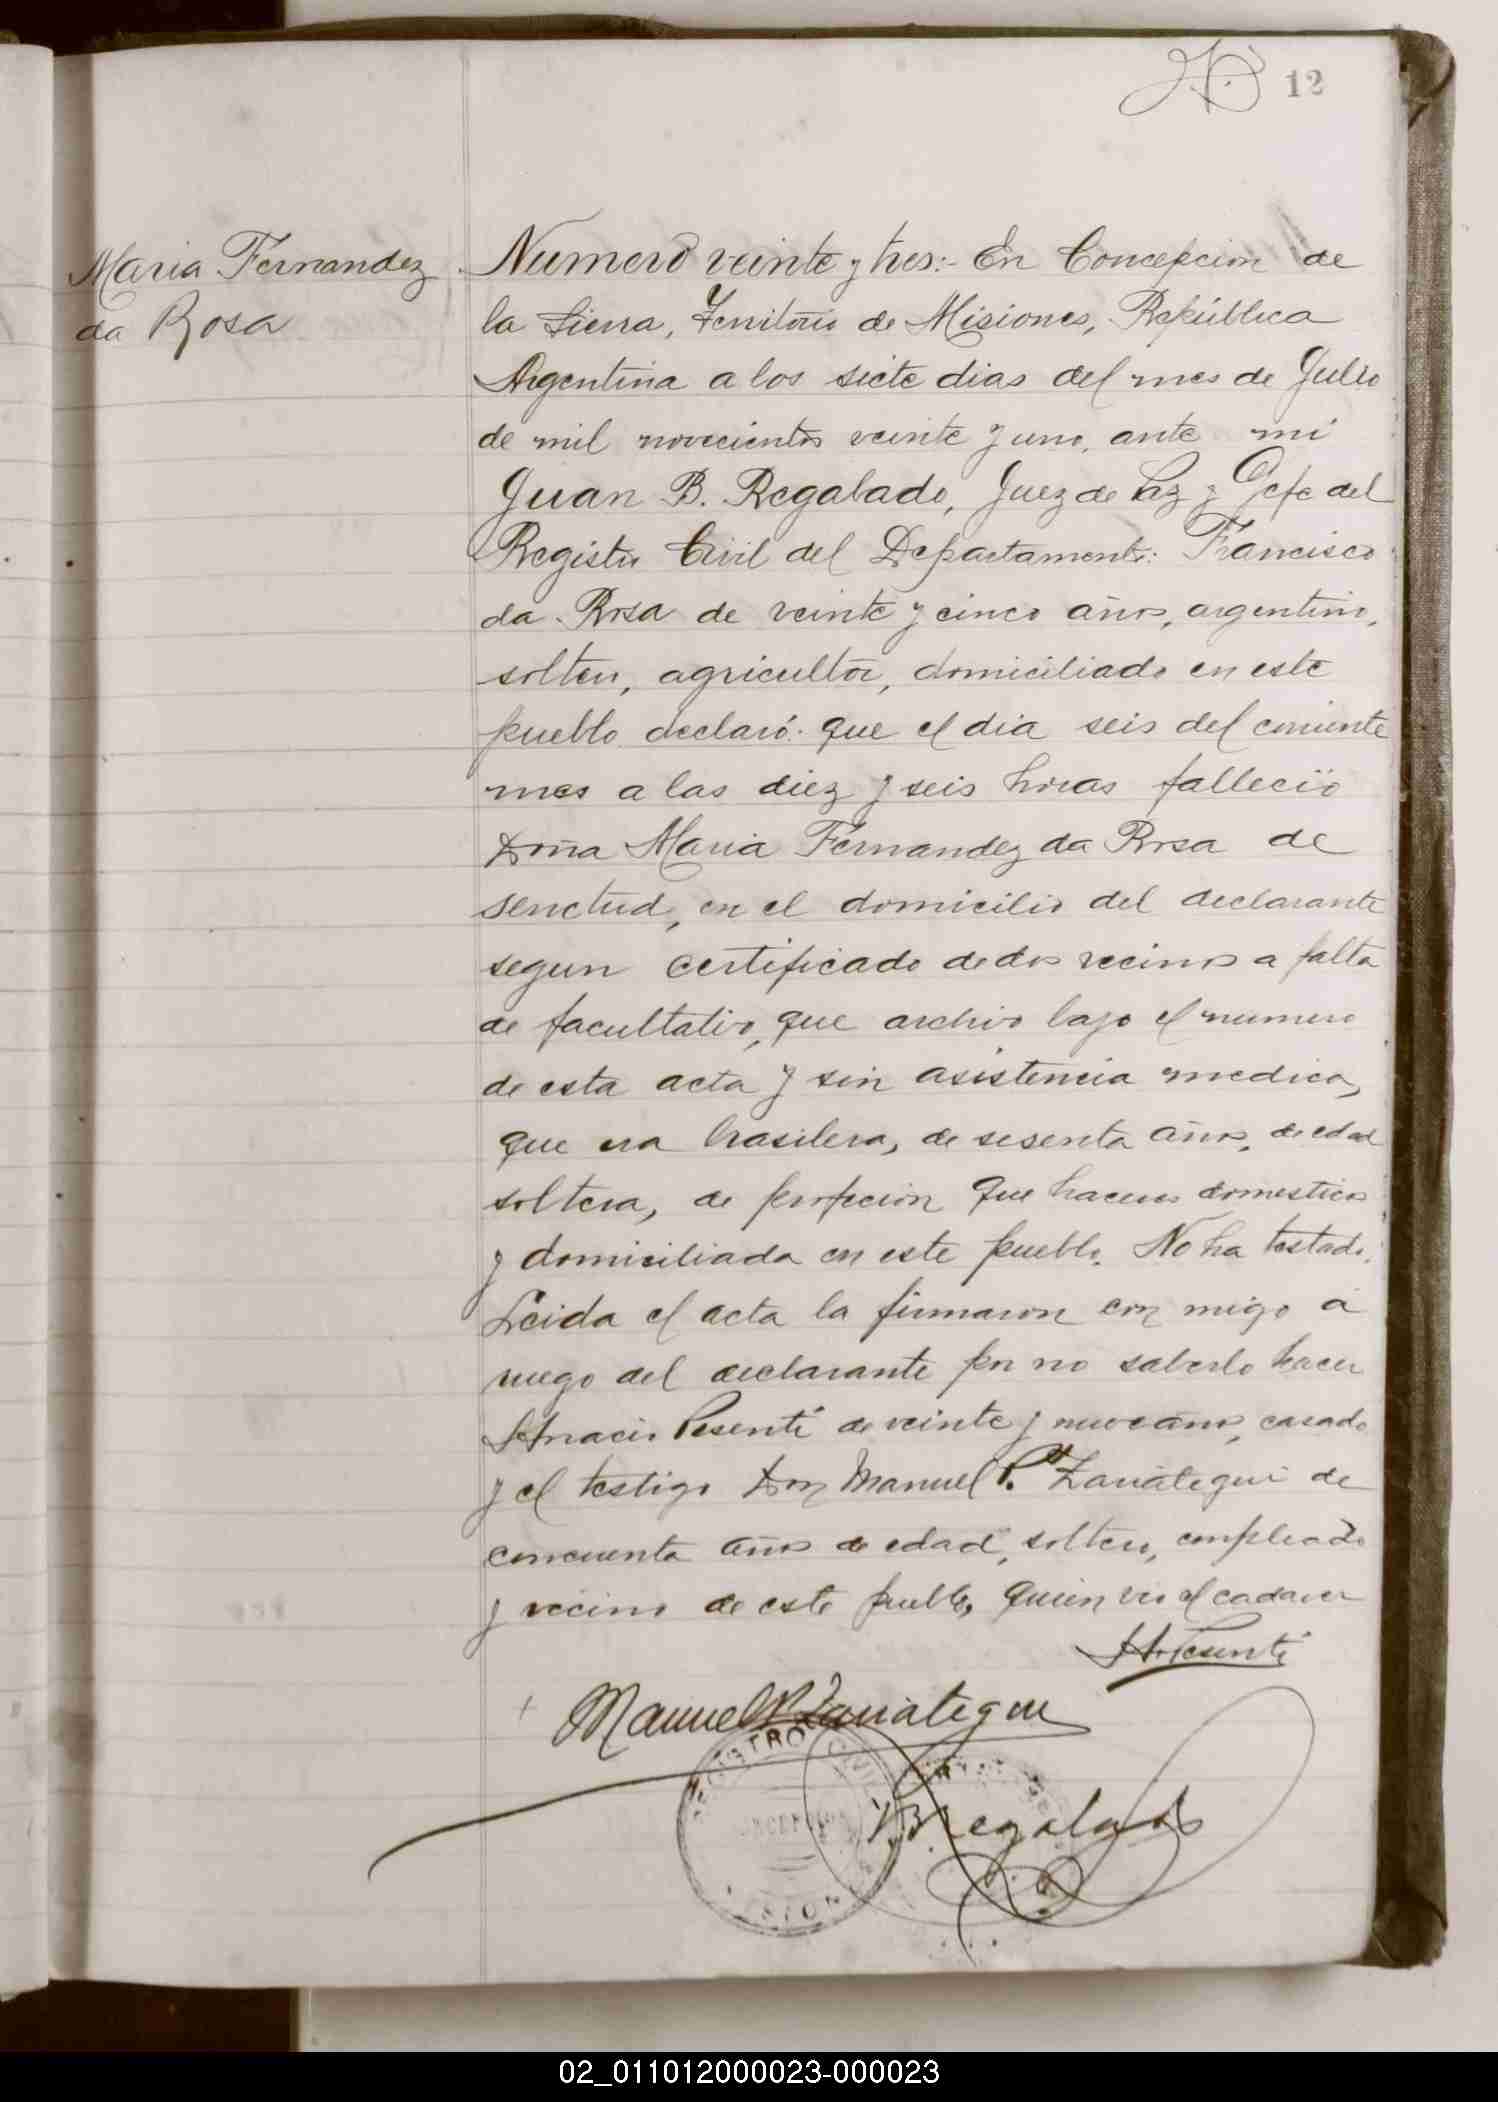 12
Maria Fernandez
da Rosa
Numero veinte y tres:- En Concepcion de
la Sierra, Territorio de Misiones, República
Argentina a los siete dias del mes de Julio
de mil novecientos veinte y uno, ante mi
Juan B. Regalado, Juez de Paz y Gefe del
Registro Civil del Departamento: Francisco
da Rosa de veinte y cinco años, argentino,
soltero, agricultor, domiciliado en este
pueblo declaró: que el dia seis del corriente
mes a las diez y seis horas falleció
Doña Maria Fernandez da Rosa de
senctud, en el domicilio del declarante
segun certificado de dos vecinos a falta
de facultativo, que archivo bajo el numero
de esta acta y sin asistencia medica,
que era brasilera, de sesenta años, de edad
soltera, de profecion que haceres domesticos
y domiciliada en este pueblo. No ha testado.
Leida el acta la firmaron con migo a
ruego del declarante por no saberlo hacer
Pesenti de veinte y nueve años, casado
y el testigo Don Manuel P. Zariátegui de
cincuenta años de edad, soltero, empleado
y vecino de este pueblo, quien vio el cadaver
Pesenti
Manuel P. Zariategui
REGISTRO CIVIL
CONCEPCION
MISIONES
JBRegalado
02_011012000023-000023